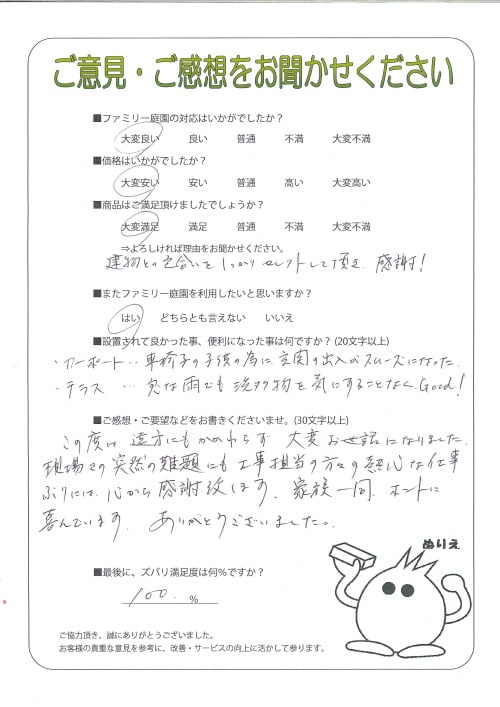 ご意見・ご感想をお聞かせください
■ファミリー庭園の対応はいかがでしたか？
大変良い 良い 普通 不満 大変不満
■価格はいかがでしたか？
大変安い 安い 普通 高い 大変高い
■商品はご満足頂けましたでしょうか？
大変満足 満足 普通 不満 大変不満
⇒よろしければ理由をお聞かせください。
建物との色合いをしっかりセレクトして頂き、感謝！
■またファミリー庭園を利用したいと思いますか？
はい どちらとも言えない いいえ
■設置されて良かった事、便利になった事は何ですか？(20文字以上)
・カーポート…車椅子の子供の為に玄関の出入がスムーズになった。
・テラス…急な雨でも洗濯物を気にすることなくGood！
■ご感想・ご要望などをお書きくださいませ。(30文字以上)
この度は、遠方にもかかわらず大変お世話になりました。
現場での突然の難題にも工事担当の方々の熱心な仕事
ぶりには、心から感謝致します。家族一同、ホントに
喜んでいます。ありがとうございました。
ぬりえ
■最後に、ズバリ満足度は何％ですか？
100. ％
ご協力頂き、誠にありがとうございました。
お客様の貴重な意見を参考に、改善・サービスの向上に活かして参ります。